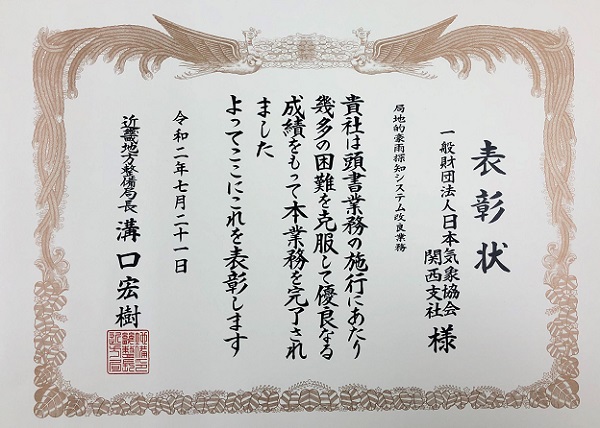 表彰状
一般財団法人日本気象協会
関西支社 様
局地的豪雨探知システム改良業務
貴社は頭書業務の施行にあたり
幾多の困難を克服して優良なる
成績をもって本業務を完了され
ました
よってここにこれを表彰します
令和二年七月二十一日
近畿地方整備局長 溝口宏樹